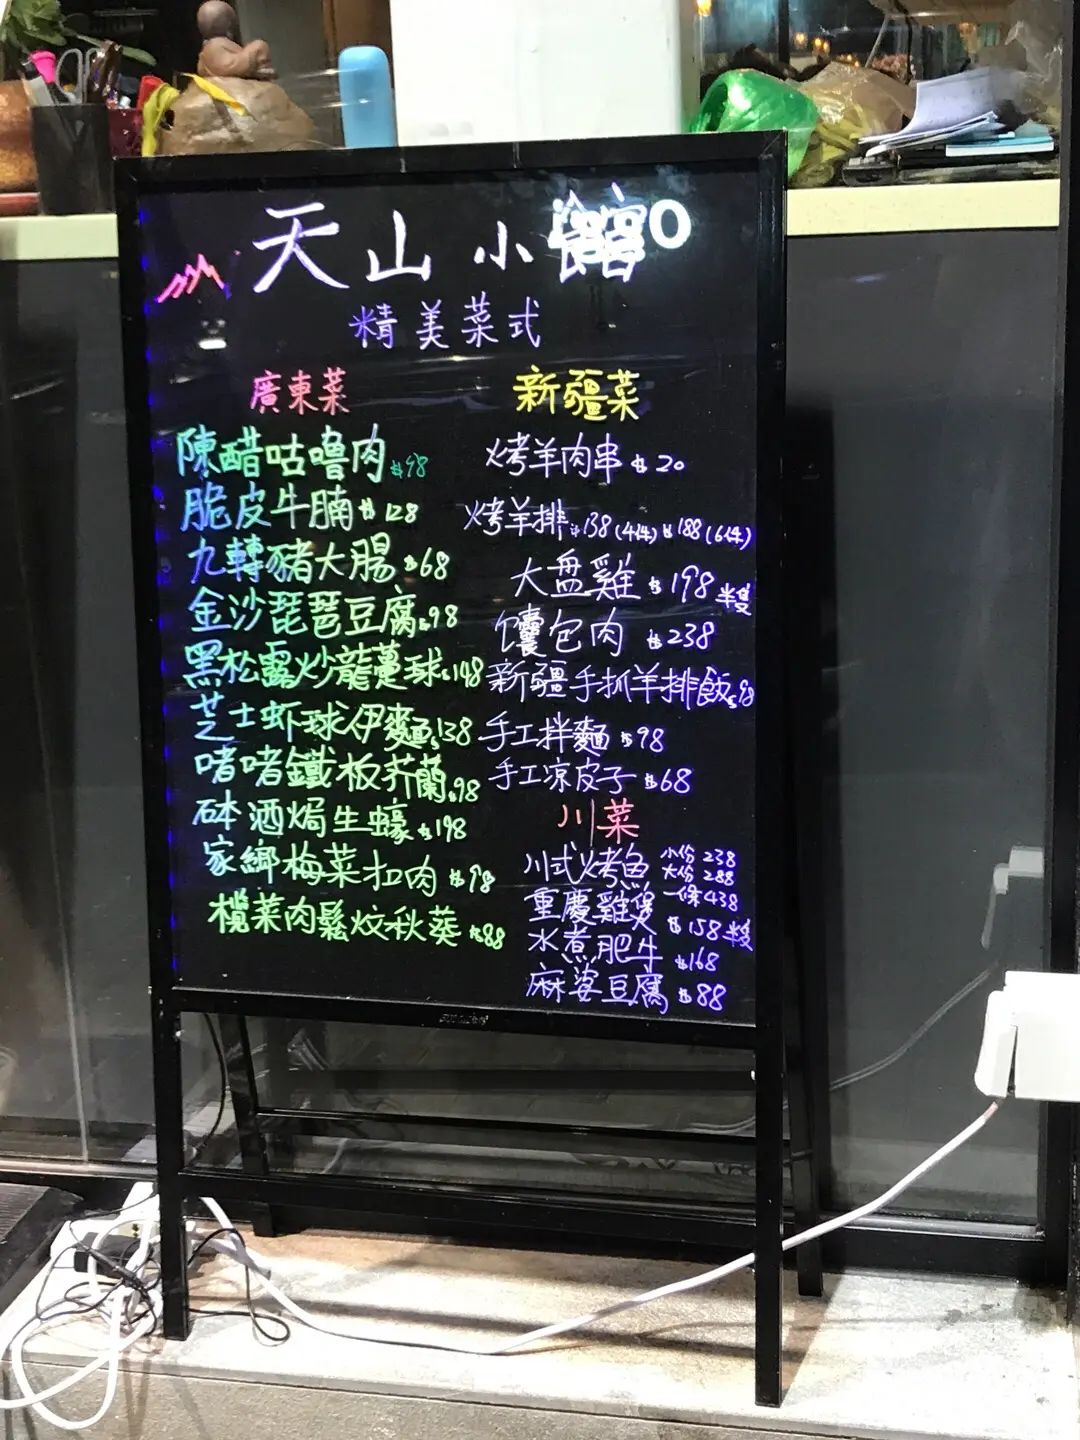 天山小館
精美菜式
廣東菜
陳醋咕嚕肉 $98
脆皮牛腩 $128
九轉豬大腸 $68
金沙琵琶豆腐 $98
黑松露炒龍躉球 $148
芝士虾球伊麵 $138
啫啫鐵板芥蘭 $98
砵酒焗生蠔 $198
家鄉梅菜扣肉 $98
欖菜肉鬆炆秋葵 $88
新疆菜
烤羊肉串 $20
烤羊排 $138(4件) $188(6件)
大盘雞 $198 半隻
馕包肉 $238
新疆手抓羊排飯 $98
手工拌麵 $98
手工凉皮子 $68
川菜
川式烤魚 小份 238
大份 288
一條 438
重慶雞煲 $158 半隻
水煮肥牛 $168
麻婆豆腐 $88